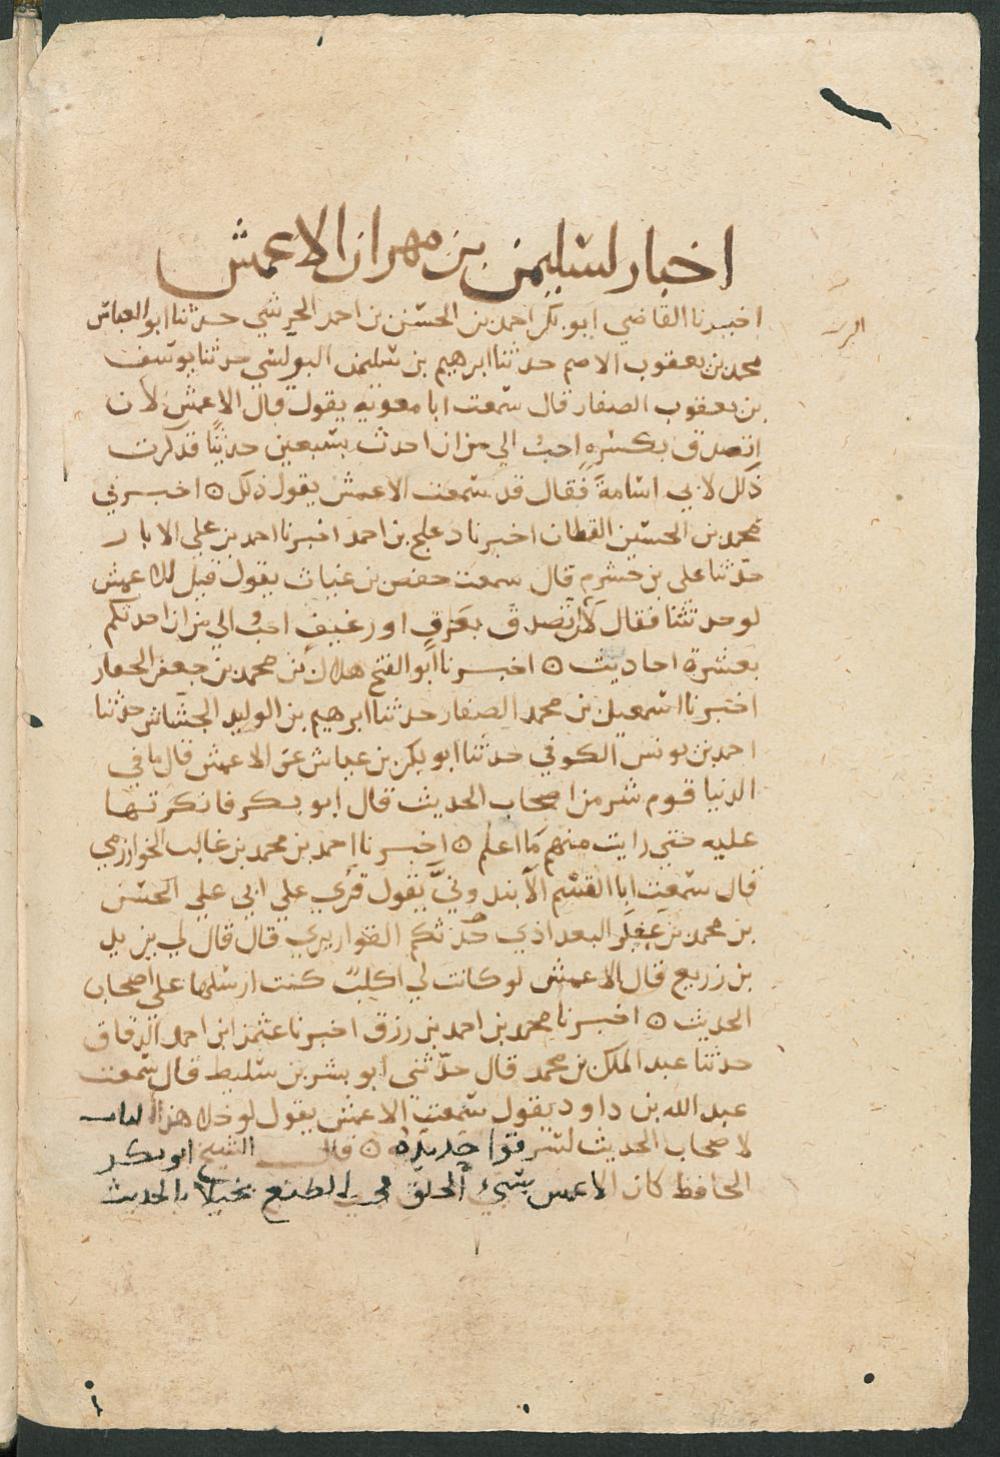 اخبار لسليمن بن مهران الاعمش
اخبرنا القاضي ابو بكر احمد بن الحسن بن احمد الحرشي حدثنا ابو العباس
محمد بن يعقوب الاصم حدثنا ابرهيم بن سليمن البرلسي حدثنا يوسف
بن يعقوب الصفار قال سمعت ابا معوية يقول قال الاعمش لان
اتصدق بكسرة احب الي من ان احدث بسبعين حديثا فذكرت
ذلك لابي اسامة فقال قد سمعت الاعمش يقول ذلك ۞ اخبرني
محمد بن الحسين القطان اخبرنا دعلج بن احمد اخبرنا احمد بن علي الابار
حدثنا علي بن خشرم قال سمعت حفص بن غياث يقول قيل للاعمش
لو حدثتنا فقال لان اتصدق بعرق او رغيف احب الي من ان احدثكم
بعشرة احاديث ۞ اخبرنا ابو الفتح هلال بن محمد بن جعفر الحفار
اخبرنا اسمعيل بن محمد الصفار حدثنا ابرهيم بن الوليد الجشاش حدثنا
احمد بن يونس الكوفي حدثنا ابو بكر بن عياش عن الاعمش قال ما في
الدنيا قوم شر من اصحاب الحديث قال ابو بكر فانكرتها
عليه حتى رايت منهم ما اعلم ۞ اخبرنا احمد بن محمد بن غالب الخوارزمي
قال سمعت ابا القسم الآبندوني يقول قرئ على ابي علي الحسن
بن محمد بن البغداذي حدثكم القواريري قال قال لي يزيد
بن زريع قال الاعمش لو كانت لي اكلب كنت ارسلها على اصحاب
الحديث ۞ اخبرنا محمد بن احمد بن رزق اخبرنا عثمن ابن احمد الدقاق
حدثنا عبد الملك بن محمد قال حدثني ابو بشر بن سليط قال سمعت
عبد الله بن داود يقول سمعت الاعمش يقول لو هذا الباب
لاصحاب الحديث لسرقوا حديده ۞ قال الشيخ ابو بكر
الحافظ كان الاعمش سيئ الخلق الطبع بخيلا بالحديث